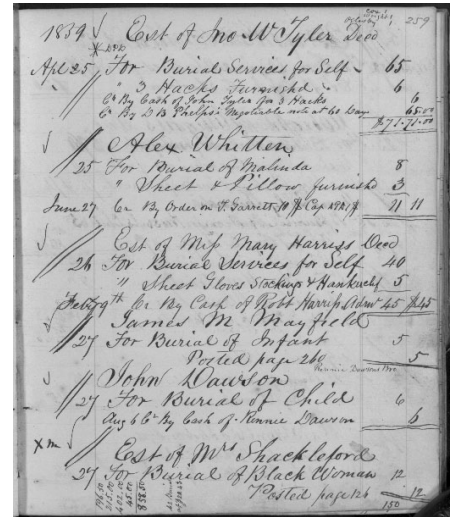 259
1839 Est of Jno W Tyler Decd
Apl 25 For Burial Services for Self 65
" 3 Hacks Furnishd 6
Cr By Cash of John Tyler for 3 Hacks 6
Cr By D B Phelps's Negotiable note at 60 Days 65.00
$71-71.00
Alex Whitten
25 For Burial of Malinda 8
" Sheet & Pillow furnishd 3
June 27 Cr By Order on T. Garrett 11 11
Est of Miss Mary Harriss Decd
26 For Burial Services for Self 40
" Sheet Gloves Stockings & Hankuchf 5
9th Cr By Cash of Robt Harriss Admr 45 $45
James M Mayfield
27 For Burial of Infant 5
Posted page 260 5
John Dawson
27 For Burial of Child 6
Aug 6 Cr By Cash of Rinnie Dawson 6
x m Est of Mrs Shackleford
27 For Burial of Black Woman 12
Posted page 126 12
150